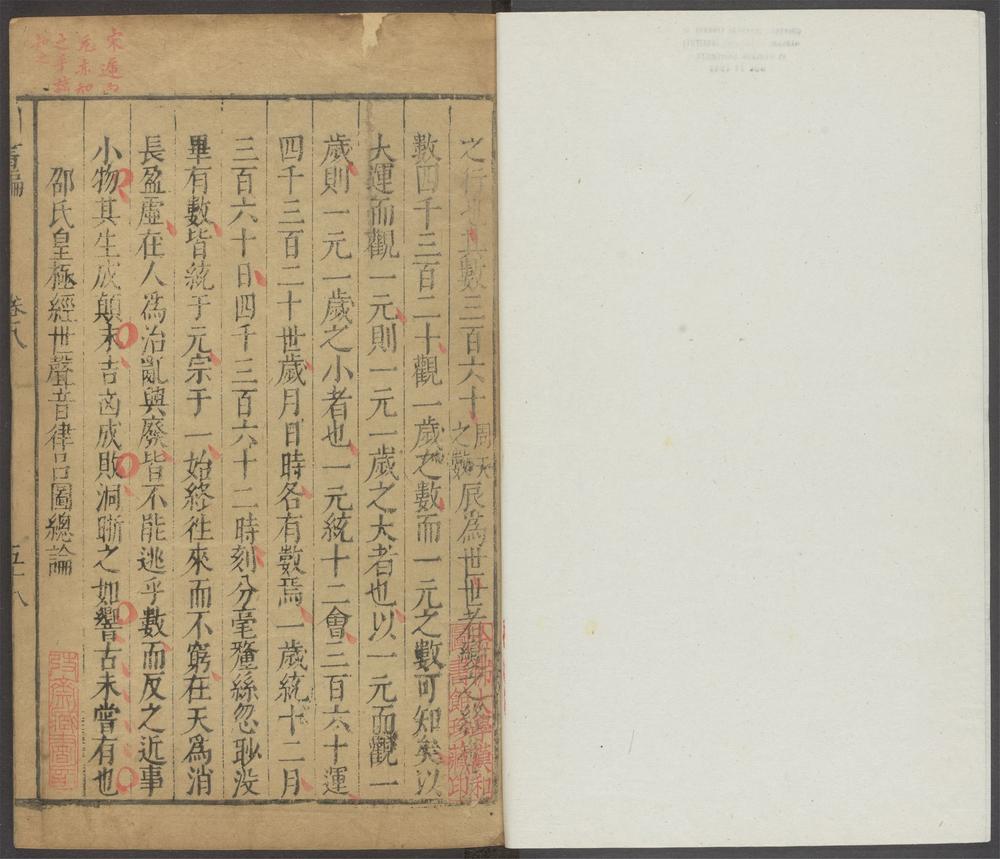 之行數三百六十周天之數辰為世世者
數四千三百二十觀一歲之數而一元之數可知矣以
大運而觀一元則一元一歲之大者也以一元而觀一
歲則一元一歲之小者也一元統十二會三百六十運
四千三百二十世歲月日時各有數焉一歲統十二月
三百六十日四千三百六十二時刻分毫釐絲忽眇没
畢有數皆統于元宗于一始終徃來而不窮在天為消
長盈虛在人為治亂興廢皆不能逃乎數而反之近事
小物其生成顛末吉凶成敗洞晰之如響古未嘗有也
邵氏皇極經世聲音律呂圖總論
卷八
五十八